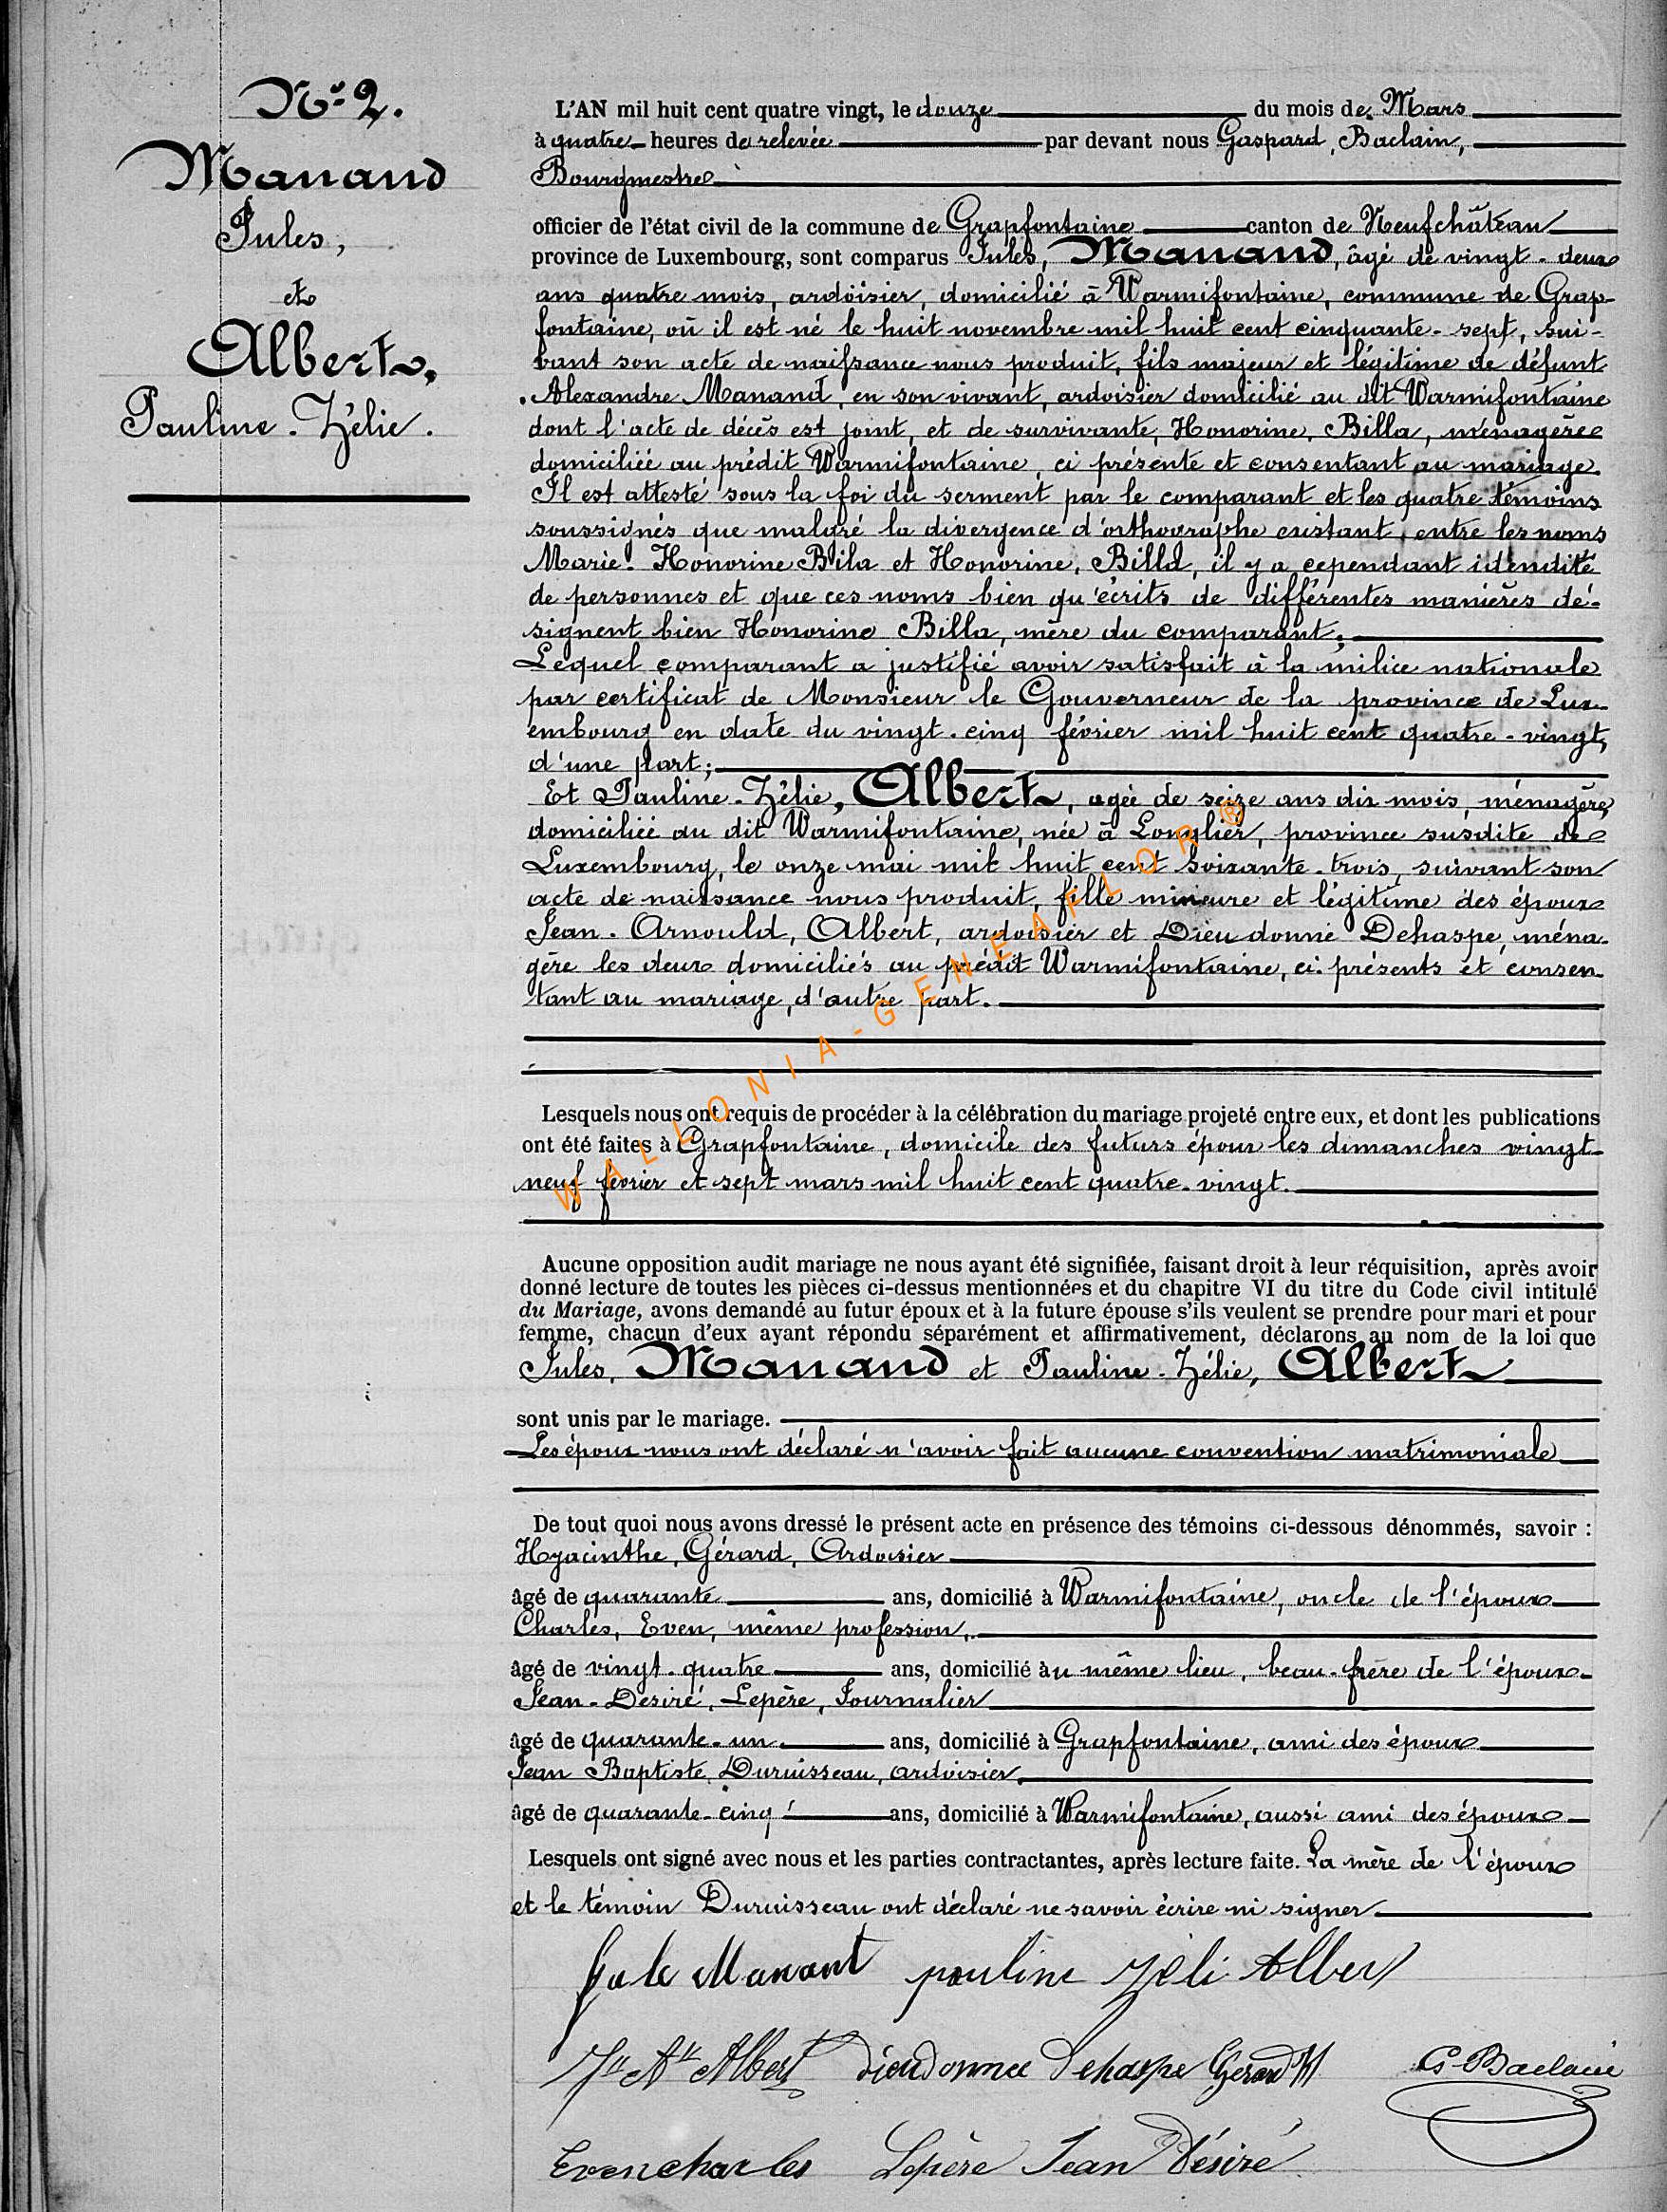 Nº 2.
Manand
Jules,
et
Albert,
Pauline-Zélie.
L'AN mil huit cent quatre vingt, le douze du mois de Mars
à quatre heures de relevée par devant nous Gaspard, Baclain,
Bourgmestre
officier de l'état civil de la commune de Grapfontaine canton de Neufchâteau
province de Luxembourg, sont comparus Jules, Manand, âgé de vingt-deux
ans quatre mois, ardoisier, domicilié à Warmifontaine, commune de Grap-
fontaine, où il est né le huit novembre mil huit cent cinquante-sept, sui-
vant son acte de naissance nous produit, fils majeur et légitime de défunt
Alexandre Manand, en son vivant, ardoisier domicilié au dit Warmifontaine
dont l'acte de décès est joint, et de survivante, Honorine, Billa, ménagère
domiciliée au prédit Warmifontaine, ci présente et consentant au mariage.
Il est attesté sous la foi du serment par le comparant et les quatre témoins
soussignés que malgré la divergence d'orthographe existant entre les noms
Marie Honorine Bila et Honorine, Billa, il y a cependant idendité
de personnes et que ces noms bien qu'écrits de différentes manières dé-
signent bien Honorine Billa, mère du comparant.
Lequel comparant a justifié avoir satisfait à la milice nationale
par certificat de Monsieur le Gouverneur de la province de Lux-
embourg en date du vingt-cinq février mil huit cent quatre-vingt,
d'une part;
Et Pauline-Zélie, Albert, agée de seize ans dix mois, ménagère,
domiciliée au dit Warmifontaine, née à Longlier, province susdite de
Luxembourg, le onze mai mil huit cent soixante-trois, suivant son
acte de naissance nous produit, fille mineure et légitime des époux
Jean-Arnould, Albert, ardoisier et Dieudonné Dehaspe, ména-
gère les deux domiciliés au prédit Warmifontaine, ci-présents et consen-
tant au mariage, d'autre part.
Lesquels nous ont requis de procéder à la célébration du mariage projeté entre eux, et dont les publications
ont été faites à Grapfontaine, domicile des futurs époux les dimanches vingt-
neuf février et sept mars mil huit cent quatre-vingt.
Aucune opposition audit mariage ne nous ayant été signifiée, faisant droit à leur réquisition, après avoir
donné lecture de toutes les pièces ci-dessus mentionnées et du chapitre VI du titre du Code civil intitulé
du Mariage, avons demandé au futur époux et à la future épouse s'ils veulent se prendre pour mari et pour
femme, chacun d'eux ayant répondu séparément et affirmativement, déclarons au nom de la loi que
Jules, Manand et Pauline-Zélie, Albert
sont unis par le mariage.
Les époux nous ont déclaré n'avoir fait aucune convention matrimoniale
De tout quoi nous avons dressé le présent acte en présence des témoins ci-dessous dénommés, savoir :
Hyacinthe, Gérard, Ardoisier
âgé de quarante ans, domicilié à Warmifontaine, oncle de l'époux
Charles, Even, même profession,
âgé de vingt-quatre ans, domicilié au même lieu, beau-frère de l'époux
Jean-Desiré, Lepère, Journalier
âgé de quarante-un ans, domicilié à Grapfontaine, ami des époux
Jean Baptiste, Duruisseau, ardoisier.
âgé de quarante-cinq ans, domicilié à Warmifontaine, aussi ami des époux
Lesquels ont signé avec nous et les parties contractantes, après lecture faite. La mère de l'époux
et le témoin Duruisseau ont déclaré ne savoir écrire ni signer
Jule Manant pauline Zéli Alber
Jn Ar Albert dieudonnee Dehaspe Gerard H G Baclain
Even charles Lepère Jean Désiré
WALLONIA-GENEAFLOR ®